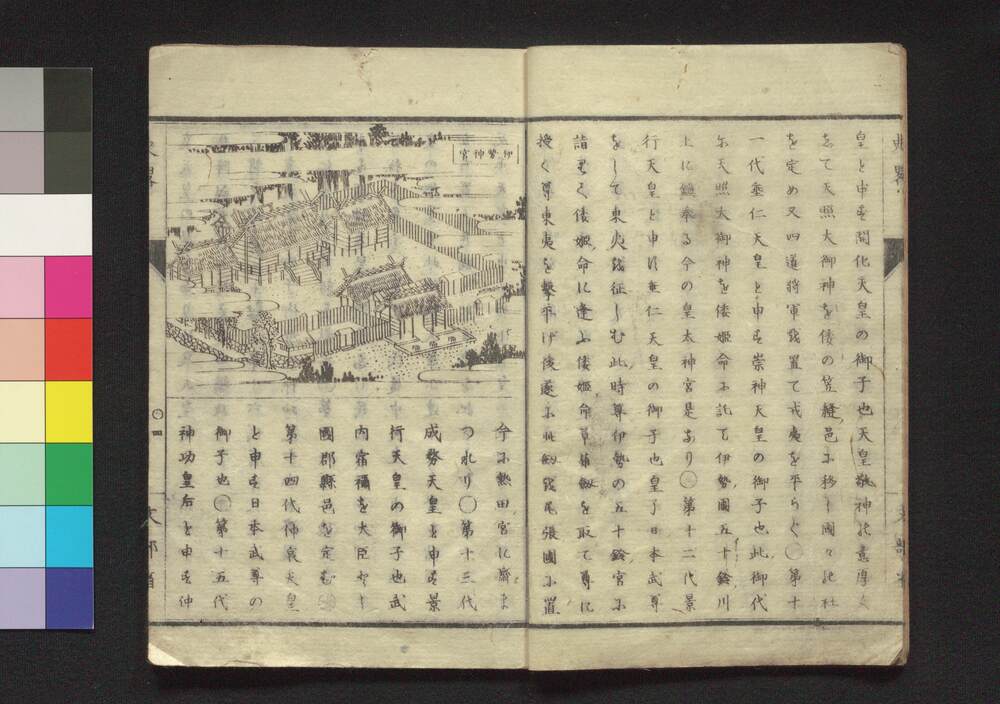 皇と申す開化天皇の御子也天皇敬神の意厚く
して天照大御神を倭の笠縫邑に移し国々の社
を定め又四道将軍を置て戎夷を平らぐ○第十
一代垂仁天皇と申す崇神天皇の御子也此御代
に天照大御神を倭姫命に託て伊勢國五十鈴川
上に鎮奉る今の皇太神宮是なり○第十二代景
行天皇と申す垂仁天皇の御子也皇子日本武尊
をして東夷を征しむ此時尊伊勢の五十鈴宮に
詣まて倭姫命に逢ふ倭姫命草薙劔を取て尊に
授く尊東夷を撃平げ後遂に此劔を尾張國に置
伊勢神宮
今に熱田宮に齋ま
つれり○第十三代
成務天皇と申す景
行天皇の御子也武
内宿禰を大臣とし
國郡縣邑を定む○
第十四代仲哀天皇
と申す日本武尊の
御子也○第十五代
神功皇后と申す仲
○四
文部省